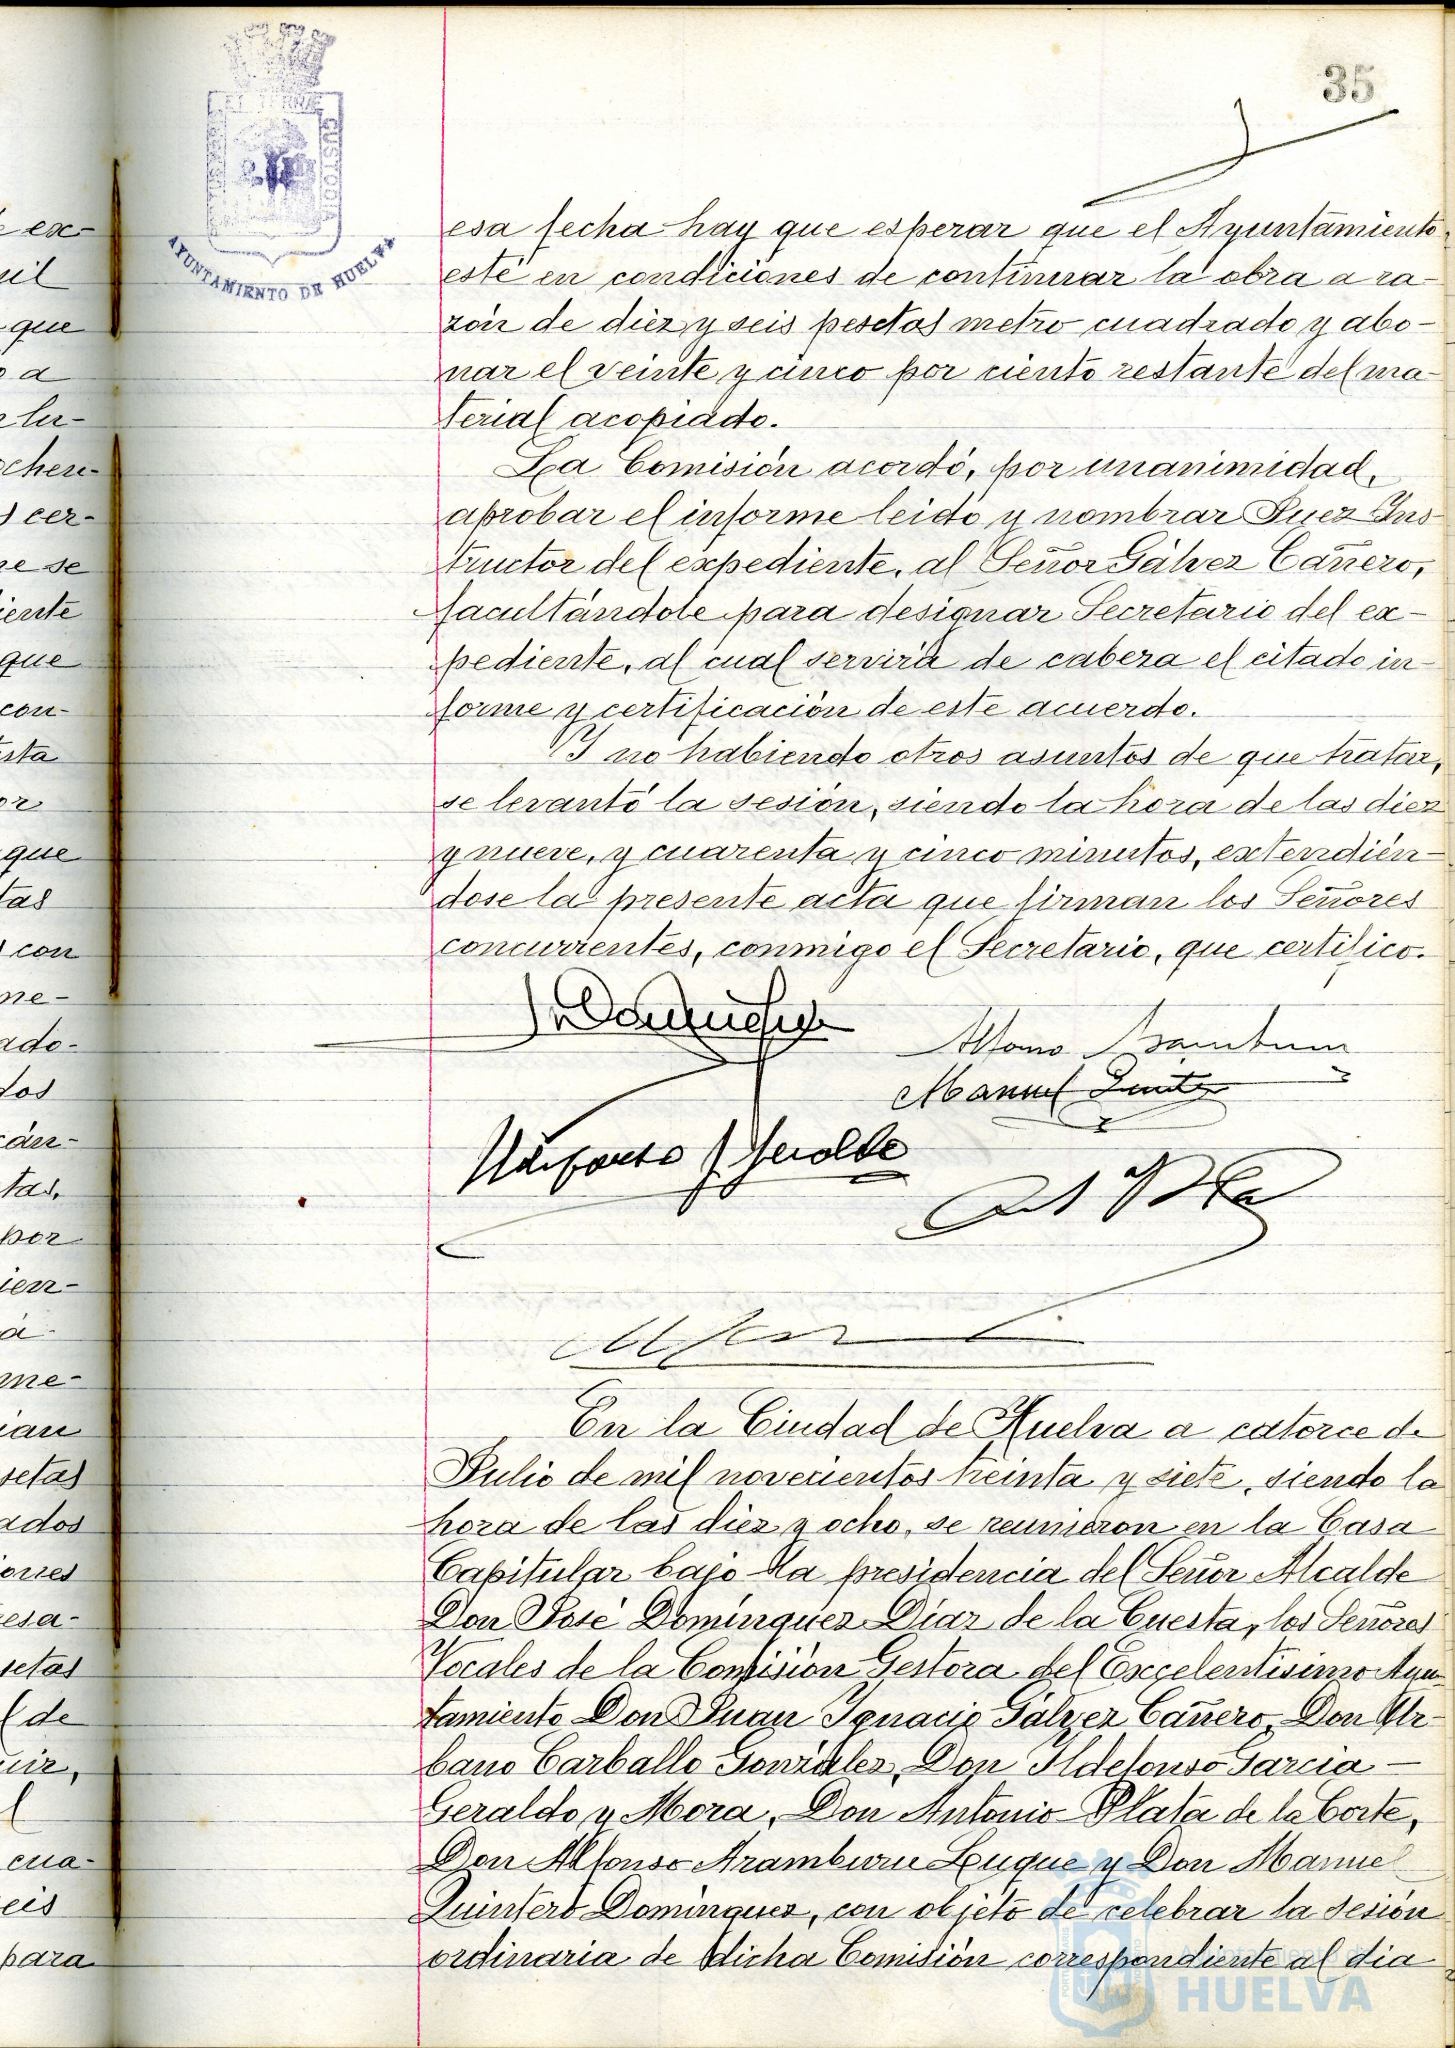 35
ET TERRÆ
CUSTODIA
AYUNTAMIENTO DE HUELVA
esa fecha hay que esperar que el Ayuntamiento,
esté en condiciones de continuar la obra a ra-
zón de diez y seis pesetas metro cuadrado y abo-
nar el veinte y cinco por ciento restante del ma-
terial acopiado.
La Comisión acordó, por unanimidad,
aprobar el informe leido y nombrar Juez Ins-
tructor del expediente, al Señor Gálvez Cañero,
facultándole para designar Secretario del ex-
pediente, al cual servirá de cabeza el citado in-
forme y certificación de este acuerdo.
Y no habiendo otros asuntos de que tratar,
se levantó la sesión, siendo la hora de las diez
y nueve, y cuarenta y cinco minutos, extendién-
dose la presente acta que firman los Señores
concurrentes, conmigo el Secretario, que certifico.
Alfonso Aramburu
Manuel Quintero
En la Ciudad de Huelva a catorce de
Julio de mil novecientos treinta y siete, siendo la
hora de las diez y ocho, se reunieron en la Casa
Capitular bajo la presidencia del Señor Alcalde
Don José Domínguez Díaz de la Cuesta, los Señores
Vocales de la Comisión Gestora del Excelentísimo Ayun-
tamiento Don Juan Ignacio Gálvez Cañero, Don Ur-
bano Carballo González, Don Ildefonso García-
Geraldo y Mora, Don Antonio Plata de la Corte,
Don Alfonso Aramburu Luque y Don Manuel
Quintero Domínguez, con objeto de celebrar la sesión
ordinaria de dicha Comisión correspondiente al dia
Ayuntamiento de
HUELVA